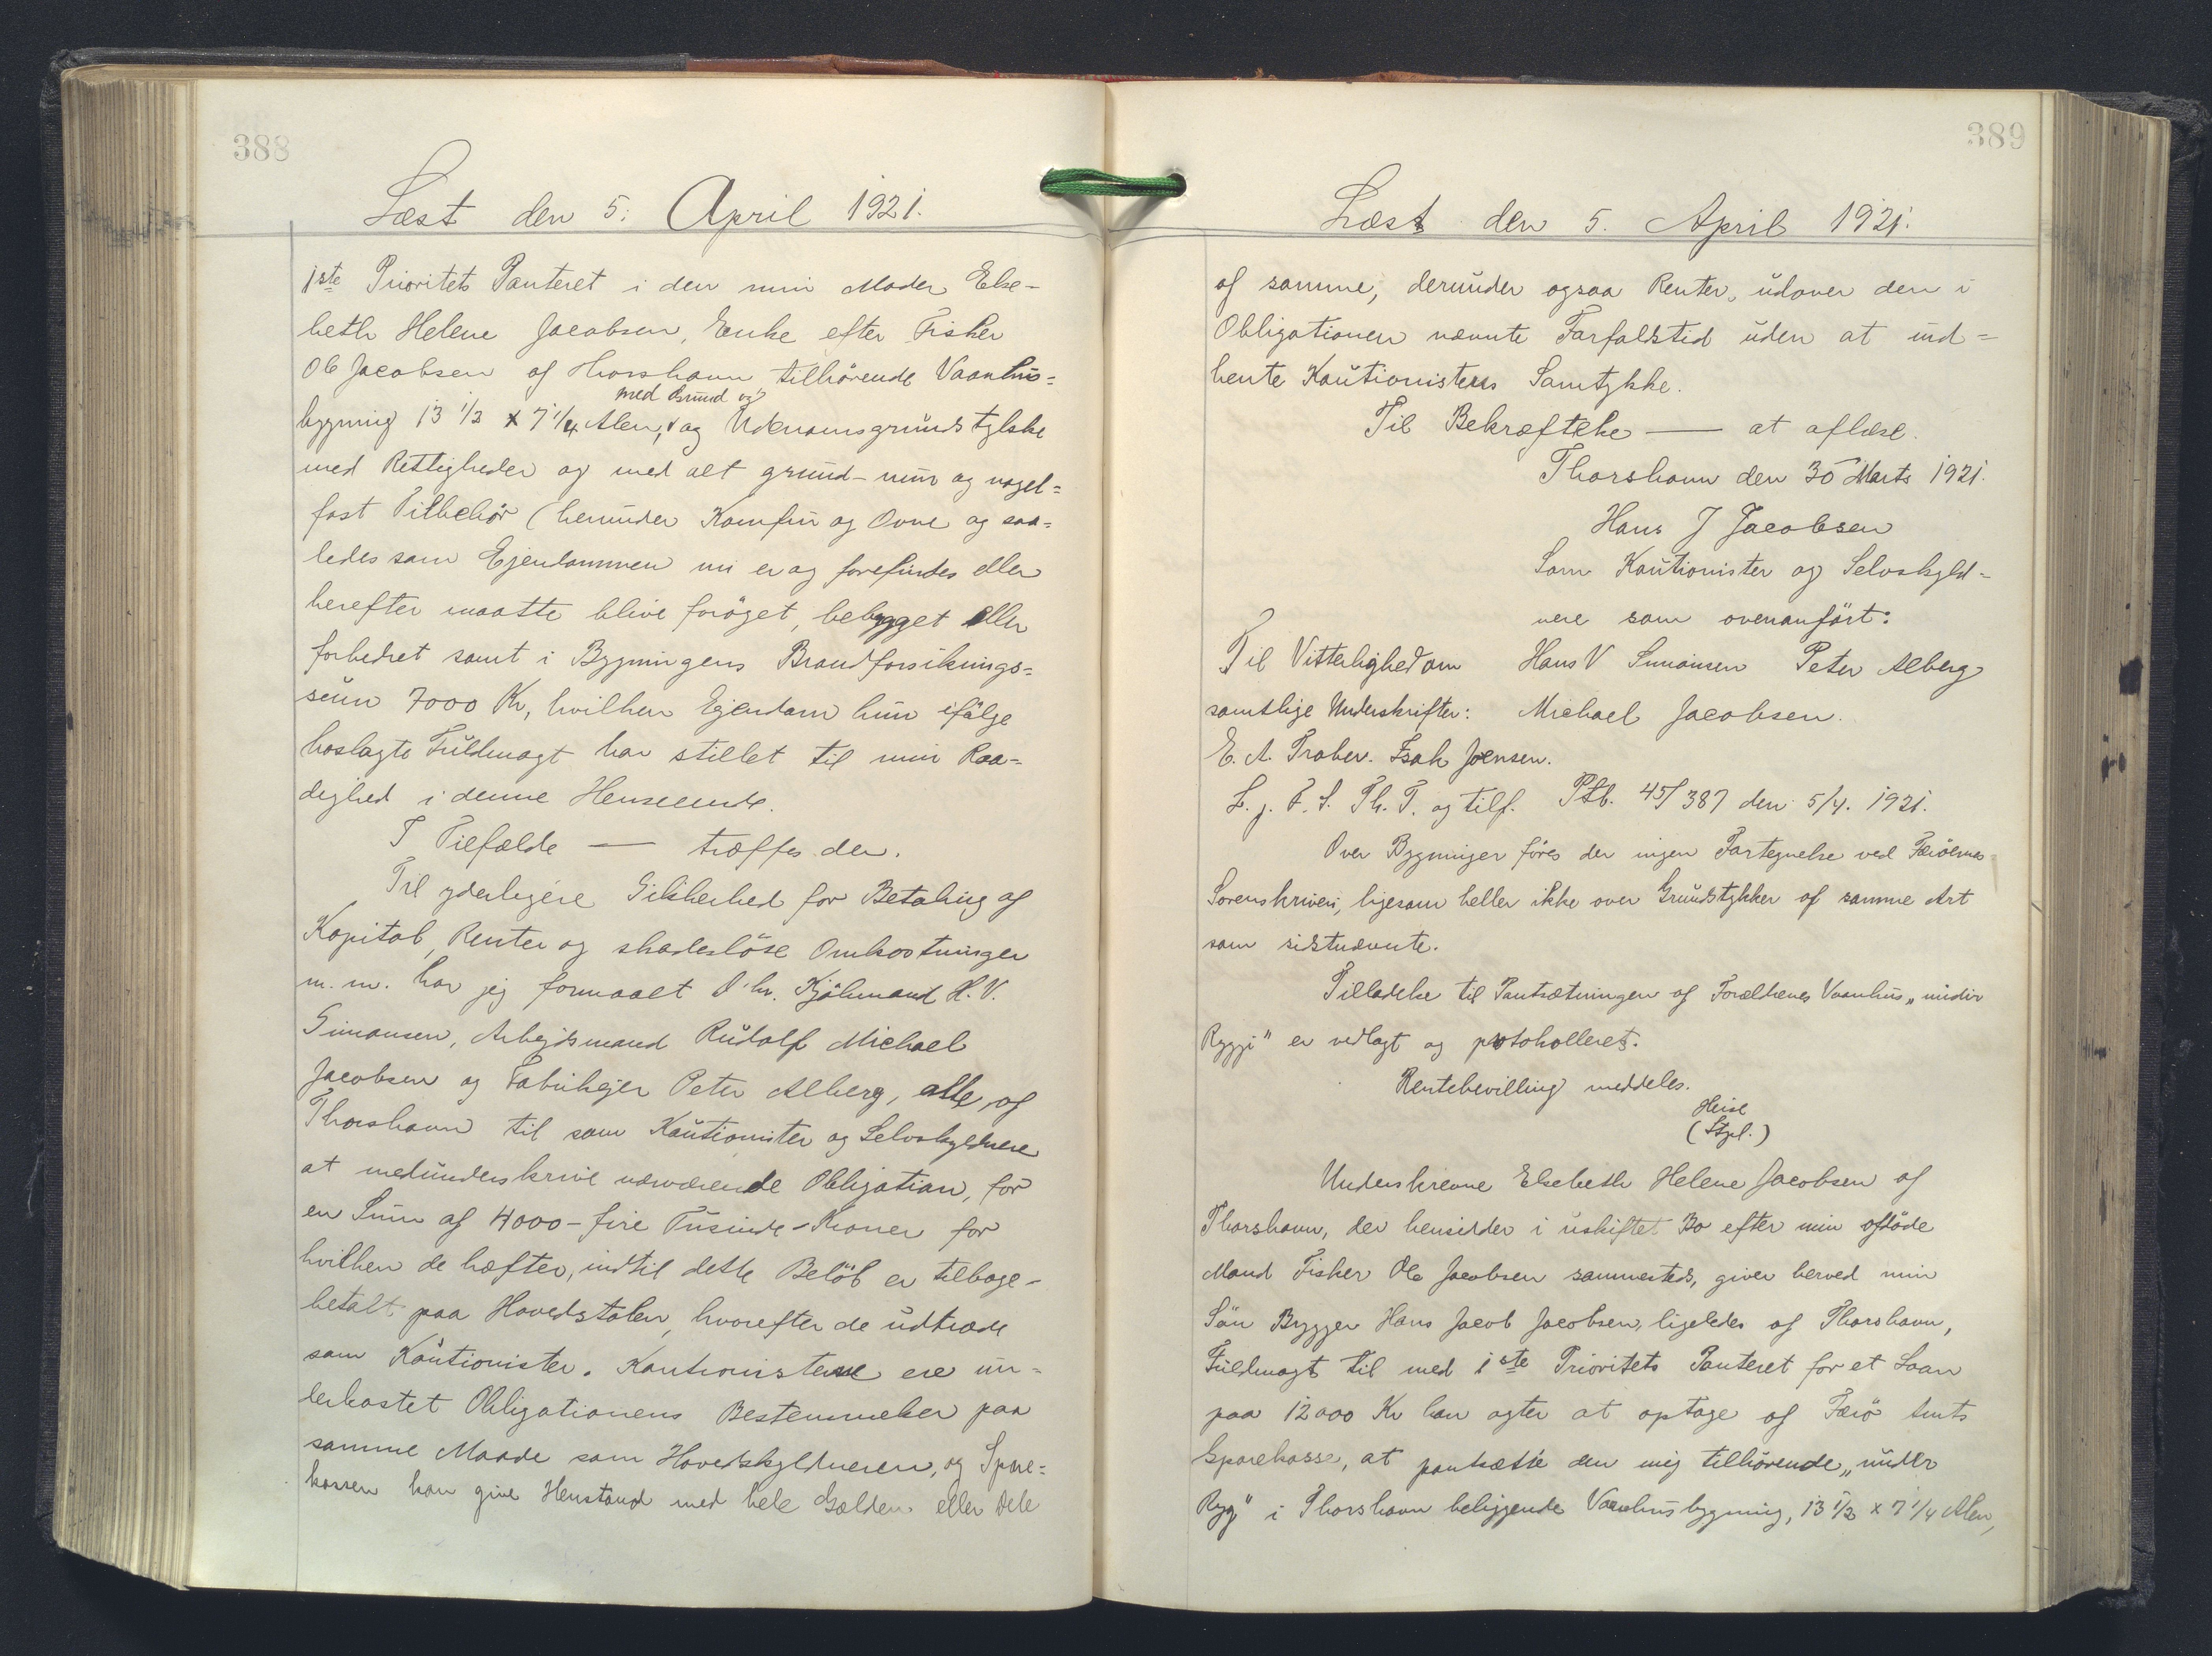 388
Læst den 5. April 1921.
1ste Prioritets Panteret i den min Moder Else-
beth Helene Jacobsen, Enke efter Fisker
Ole Jacobsen af Thorshavn, tilhörende Vaanhus=
med Grund og
bygning 13 1/2 x 7 1/4 Alen, og Udenomsgrundstykke
med Rettigheder og med alt grund- mur og nagel=
fast Tilbehör (herunder Komfur og Ovne og saa=
ledes som Ejendommen nu er og forefindes eller
herefter maatte blive foröget, bebygget eller
forbedret samt i Bygningens Brandforsikrings=
sum 7000 Kr, hvilken Ejendom hun ifölge
hoslagte Fuldmagt har stillet til min Raa=
dighed i denne Henseende.
I Tilfælde — træffes der.
Til yderligere Sikkerhed for Betaling af
Kapital, Renter og skadeslöse Omkostninger
m.m. har jeg formaaet d'hr. Kjöbmand H. V.
Simonsen, Arbejdsmand Rudolf Michael
Jacobsen og Fabrikejer Peter Alberg, alle af
Thorshavn til som Kautionister og Selvskyldnere
at medunderskrive nærværende Obligation, for
en Sum af 4000 - fire Tusinde - Kroner for
hvilken de hæfter, indtil dette Belöb er tilbage-
betalt paa Hovedstolen, hvorefter de udtræde
som Kautionister. Kautionisterne ere un=
derkastet Obligationens Bestemmelser paa
samme Maade som Hovedskyldneren, og Spare=
kassen kan give Henstand med hele Gælden eller Dele
389
Læst den 5. April 1921.
af samme, derunder ogsaa Renter, udover den i
Obligationen nævnte Forfaldstid uden at ind=
hente Kautionistens Samtykke.
Til Bekræftelse — at aflæse.
Thorshavn den 30 Marts 1921.
Hans J Jacobsen
Som Kautionister og Selvskyld-
nere som ovenanfört:
Til Vitterlighed om Hans V Simonsen Peter Alberg
samtlige Underskrifter: Michael Jacobsen.
E. A. Isak Joensen.
L. j. F. S. Th. T. og tilf. Ptb. 45/387 den 5/4. 1921.
Over Bygninger föres der ingen Fortegnelse ved Færöernes
Sorenskriveri, ligesom heller ikke over Grundstykker af samme Art
som sidstnævnte.
Tilladelse til Pantsætningen af Forældrenes Vaanhus „undir
Ryggi" er vedlagt og protokolleret.
Rentebevilling meddeles.
Heise
(Stpl.)
Underskrevne Elsebeth Helene Jacobsen af
Thorshavn, der hensidder i uskiftet Bo efter min afdöde
Mand Fisker Ole Jacobsen sammesteds, giver herved min
Sön Brygger Hans Jacob Jacobsen, ligeledes af Thorshavn,
Fuldmagt til med 1ste Prioritets Panteret for et Laan
paa 12000 Kr han agter at optage af Færö Amts
Sparekasse, at pantsætte den mig tilhörende „under
Ryg" i Thorshavn beliggende Vaanhusbygning, 13 1/2 x 7 1/4 Alen,